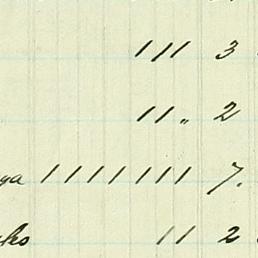 111 3
11 „ 2
ya 1111111 7.
11 2